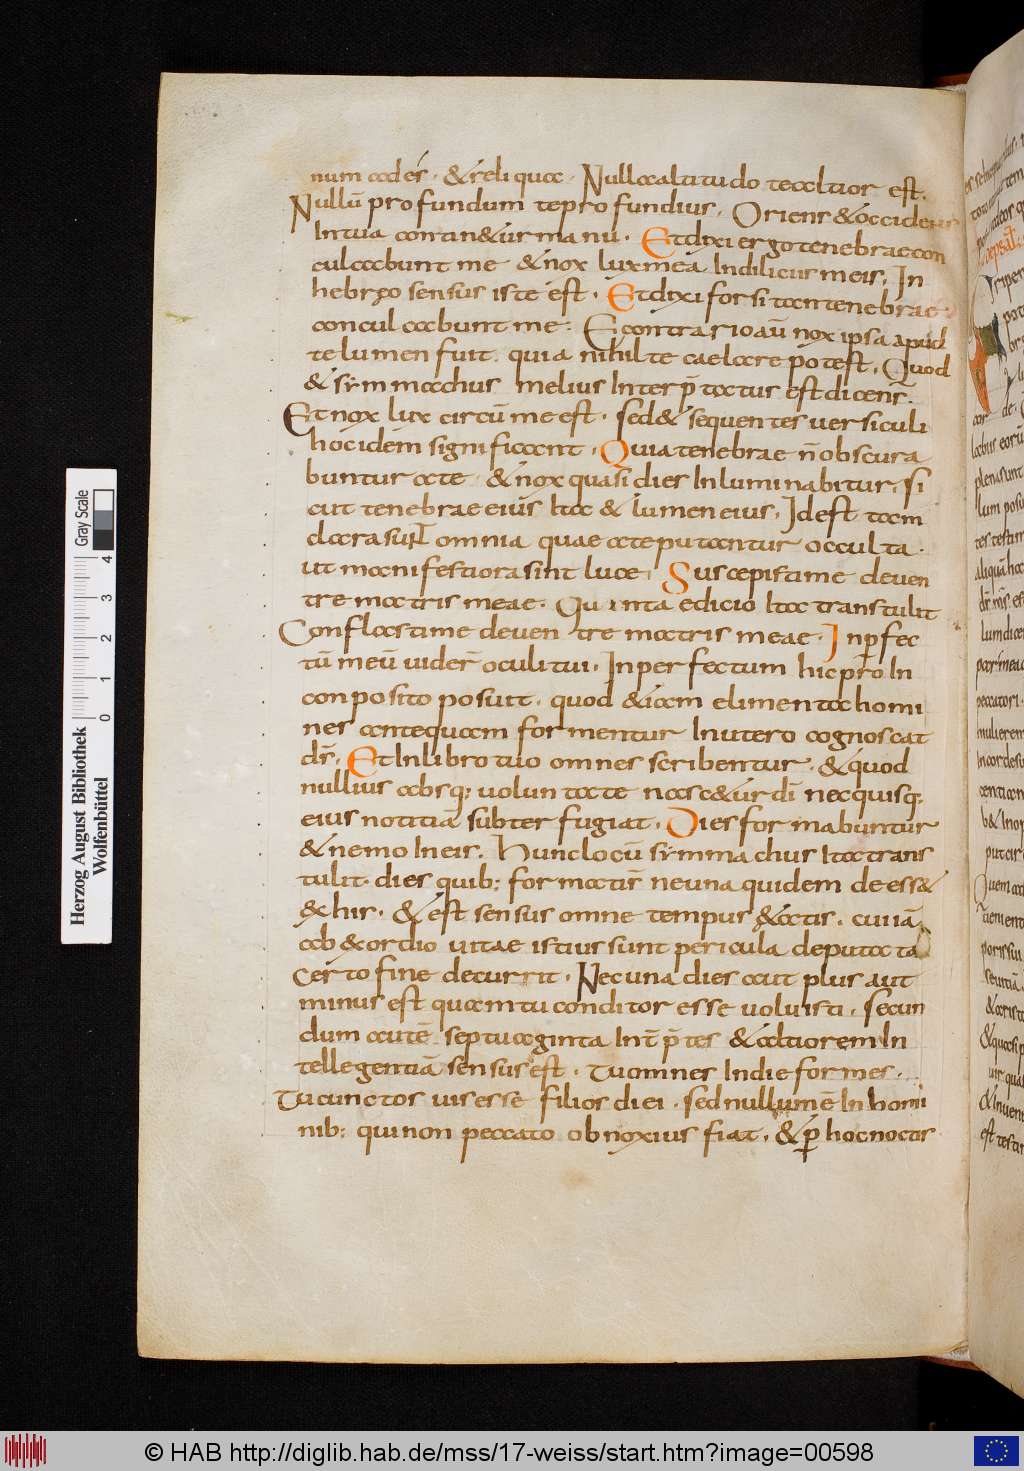 num ades· & reliqua· Nulla altitudo te altior est.
Nullū profundum te profundius, Oriens & occidens
In tua contin&ur manu· Et dixi ergo tenebrae con
culcabunt me & nox lux mea In diliciis meis, In
hebręo sensus iste est· Et dixi forsitan tenebrae
conculcabunt me: Econtrario aū nox ipsa apud
te lumen fuit quia nihil te caelare potest, Quod
& symmachus melius Interp̄tatus est dicens̄.
Et nox lux circū me est· sed & sequentes uersiculi
hoc idem significant· Quia tenebrae n̄ obscura
buntur a te & nox quasi dies Inluminabitur, si
cut tenebrae eius Ita & lumen eius, Id est tam
clara sunt omnia quae a te putantur occulta·
ut manifestiora sint luce, Suscepisti me de uen
tre matris meae· Quinta edicio Ita transtulit
Conflasti me de uentre matris meae· Inp̱fec
tū meū uider̄ oculi tui, Inperfectum hic pro In
conposito posuit· quod & iam elimenta homi
nes antequam formentur In utero cognoscat
dr̄, Et In libro tuo omnes scribentur· & quod
nullius absq; uoluntate nasc&ur dī nec quisq;
eius notitiā subterfugiat, Dies formabuntur
& nemo In eis. Hunc locū symmachus Ita trans
tulit· dies quib; formatis̄ ne una quidem deess&
& his· & est sensus omne tempus &atis, cui iā
ab &ordio uitae istius sunt pericula deputata
certo fine decurrit, Nec una dies aut plus aut
minus est quam tu conditor esse uoluisti, secun
dum autē septuaginta Int̄p̄tes & altiorem In
tellegentiā sensus est· Tu omnes In die formes·
Tu cunctos uis esse filios diei· sed nullum ē In homi
nib; qui non peccato obnoxius fiat, & p̱ hoc noctis
Gray Scale
0 1 2 3 4
Herzog August Bibliothek
Wolfenbüttel
© HAB http://diglib.hab.de/mss/17-weiss/start.htm?image=00598